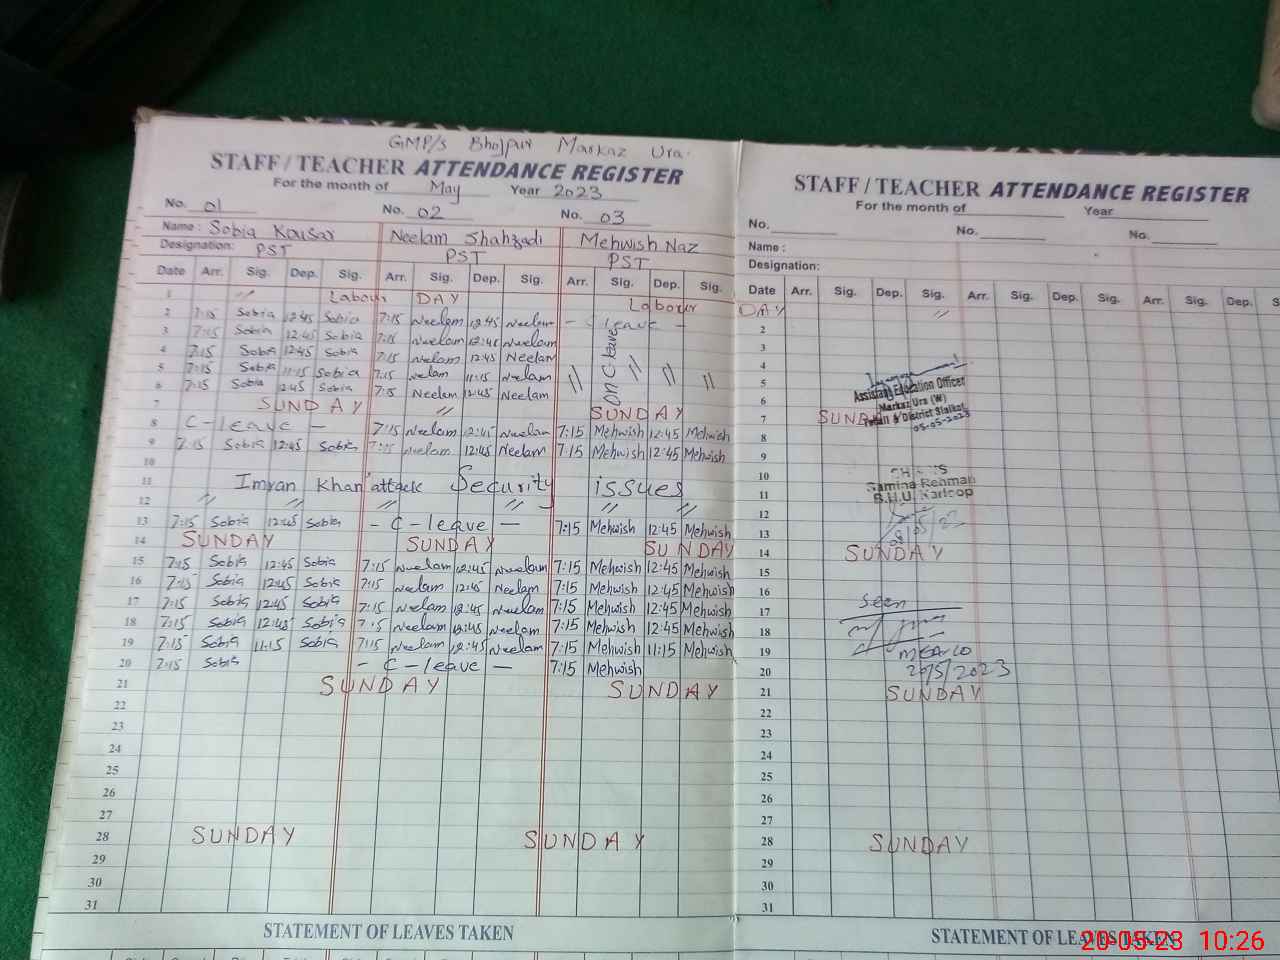 GMP/s Bhojpur Markaz Ura.
STAFF / TEACHER ATTENDANCE REGISTER
For the month of May Year 2023
No. 01 No. 02 No. 03
Name : Sobia Kousar Neelam Shahzadi Mehwish Naz
Designation: PST PST PST
Date Arr. Sig. Dep. Sig. Arr. Sig. Dep. Sig. Arr. Sig. Dep. Sig.
1 " Labour DAY Labour
2 7:15 Sobia 12:45 Sobia 7:15 Neelam 12:45 Neelam - C leave -
3 7:15 Sobia 12:45 Sobia 7:15 Neelam 12:45 Neelam
4 7:15 Sobia 12:45 Sobia 7:15 Neelam 12:45 Neelam
5 7:15 Sobia 11:15 Sobia 7:15 Neelam 11:15 Neelam " on C leave " " "
6 7:15 Sobia 12:45 Sobia 7:15 Neelam 12:45 Neelam
7 SUNDAY " SUNDAY
8 C-leave - 7:15 Neelam 12:45 Neelam 7:15 Mehwish 12:45 Mehwish
9 7:15 Sobia 12:45 Sobia 7:15 Neelam 12:45 Neelam 7:15 Mehwish 12:45 Mehwish
10
11 Imran Khan attack Security issues
12 " " " " " " "
13 7:15 Sobia 12:45 Sobia - C-leave - 7:15 Mehwish 12:45 Mehwish
14 SUNDAY SUNDAY SUNDAY
15 7:15 Sobia 12:45 Sobia 7:15 Neelam 12:45 Neelam 7:15 Mehwish 12:45 Mehwish
16 7:15 Sobia 12:45 Sobia 7:15 Neelam 12:45 Neelam 7:15 Mehwish 12:45 Mehwish
17 7:15 Sobia 12:45 Sobia 7:15 Neelam 12:45 Neelam 7:15 Mehwish 12:45 Mehwish
18 7:15 Sobia 12:45 Sobia 7:15 Neelam 12:45 Neelam 7:15 Mehwish 12:45 Mehwish
19 7:15 Sobia 11:15 Sobia 7:15 Neelam 12:45 Neelam 7:15 Mehwish 11:15 Mehwish
20 7:15 Sobia - C-leave - 7:15 Mehwish
21 SUNDAY SUNDAY
22
23
24
25
26
27
28 SUNDAY SUNDAY
29
30
31
STATEMENT OF LEAVES TAKEN
STAFF / TEACHER ATTENDANCE REGISTER
For the month of Year
No. No. No.
Name :
Designation:
Date Arr. Sig. Dep. Sig. Arr. Sig. Dep. Sig. Arr. Sig. Dep.
DAY "
2
3
4
5
Assistant Education Officer
6
Markaz Ura (W)
7 SUNDAY
& District Sialkot
05-05-2023
8
9
10
Samina Rehman
11
B.H.U. Karloop
12
13
14 SUNDAY
15
16
Seen
17
18
19
20 20/5/2023
21 SUNDAY
22
23
24
25
26
27
28 SUNDAY
29
30
31
STATEMENT OF LEAVES TAKEN
20-05-23 10:26